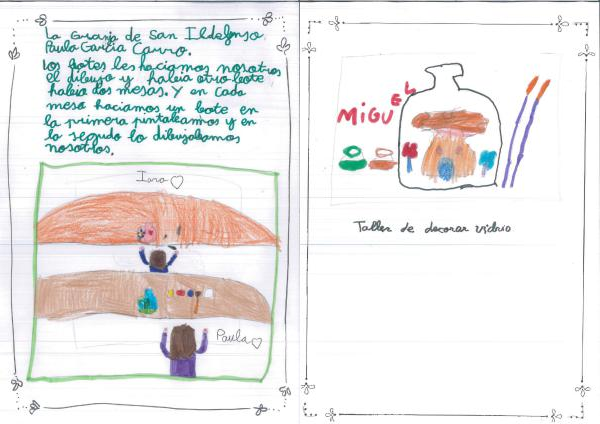 La Granja de San Ildefonso
Paula García Carro.
Los botes les haciamos nosotros
el dibujo y habeia otro bote
habeia dos mesas. Y en cada
mesa haciamos un bote en
la primera pintabamos y en
la segudo lo dibujabamos
nosotros.
Iara
Paula
MiGUEL
Taller de decorar vidrio